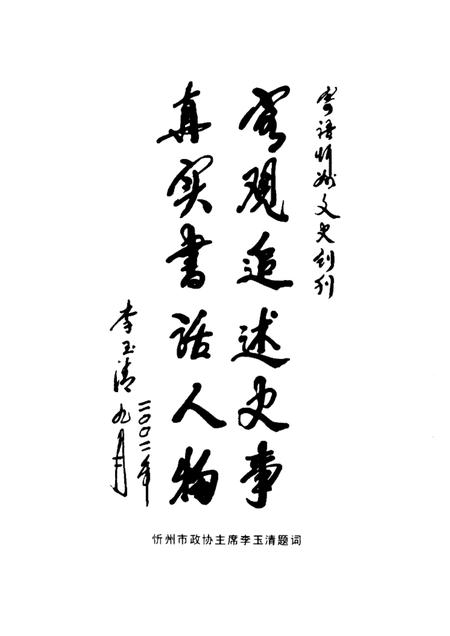 寄语忻州文史创刊
客观追述史事
真实书话人物
李玉清
二〇〇二年
九月
忻州市政协主席李玉清题词